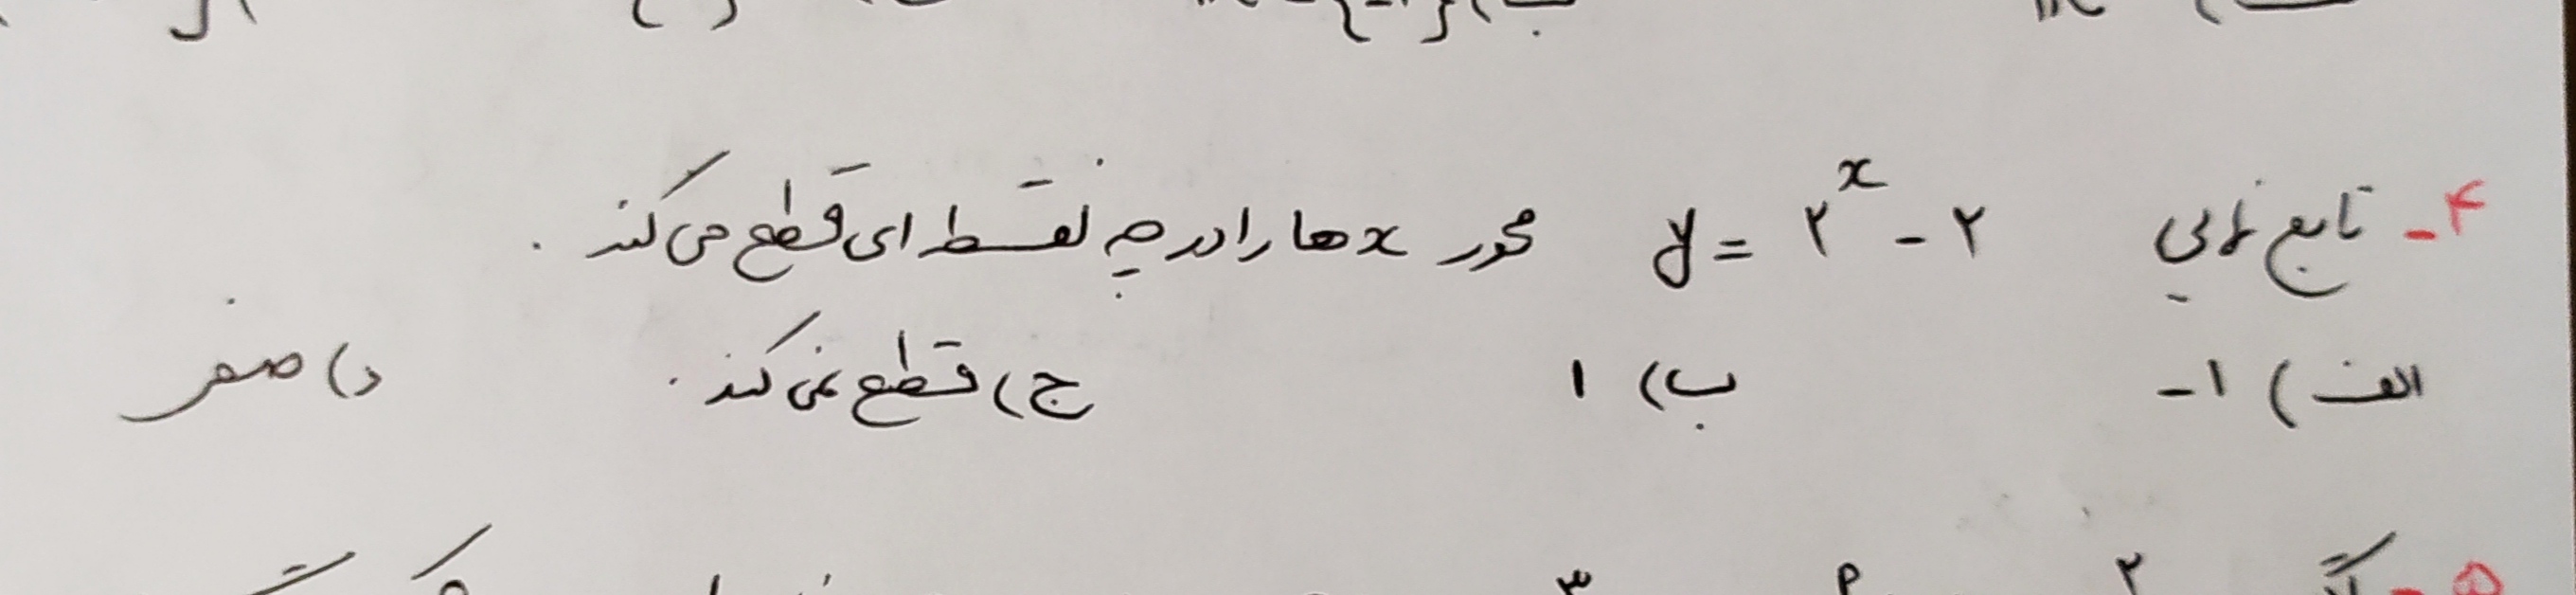 ۴- تابع نمایی y = ۲^x - ۲ محور x ها را در چه نقطه ای قطع می کند.
الف) ۱- ب) ۱ ج) قطع نمی کند. د) صفر